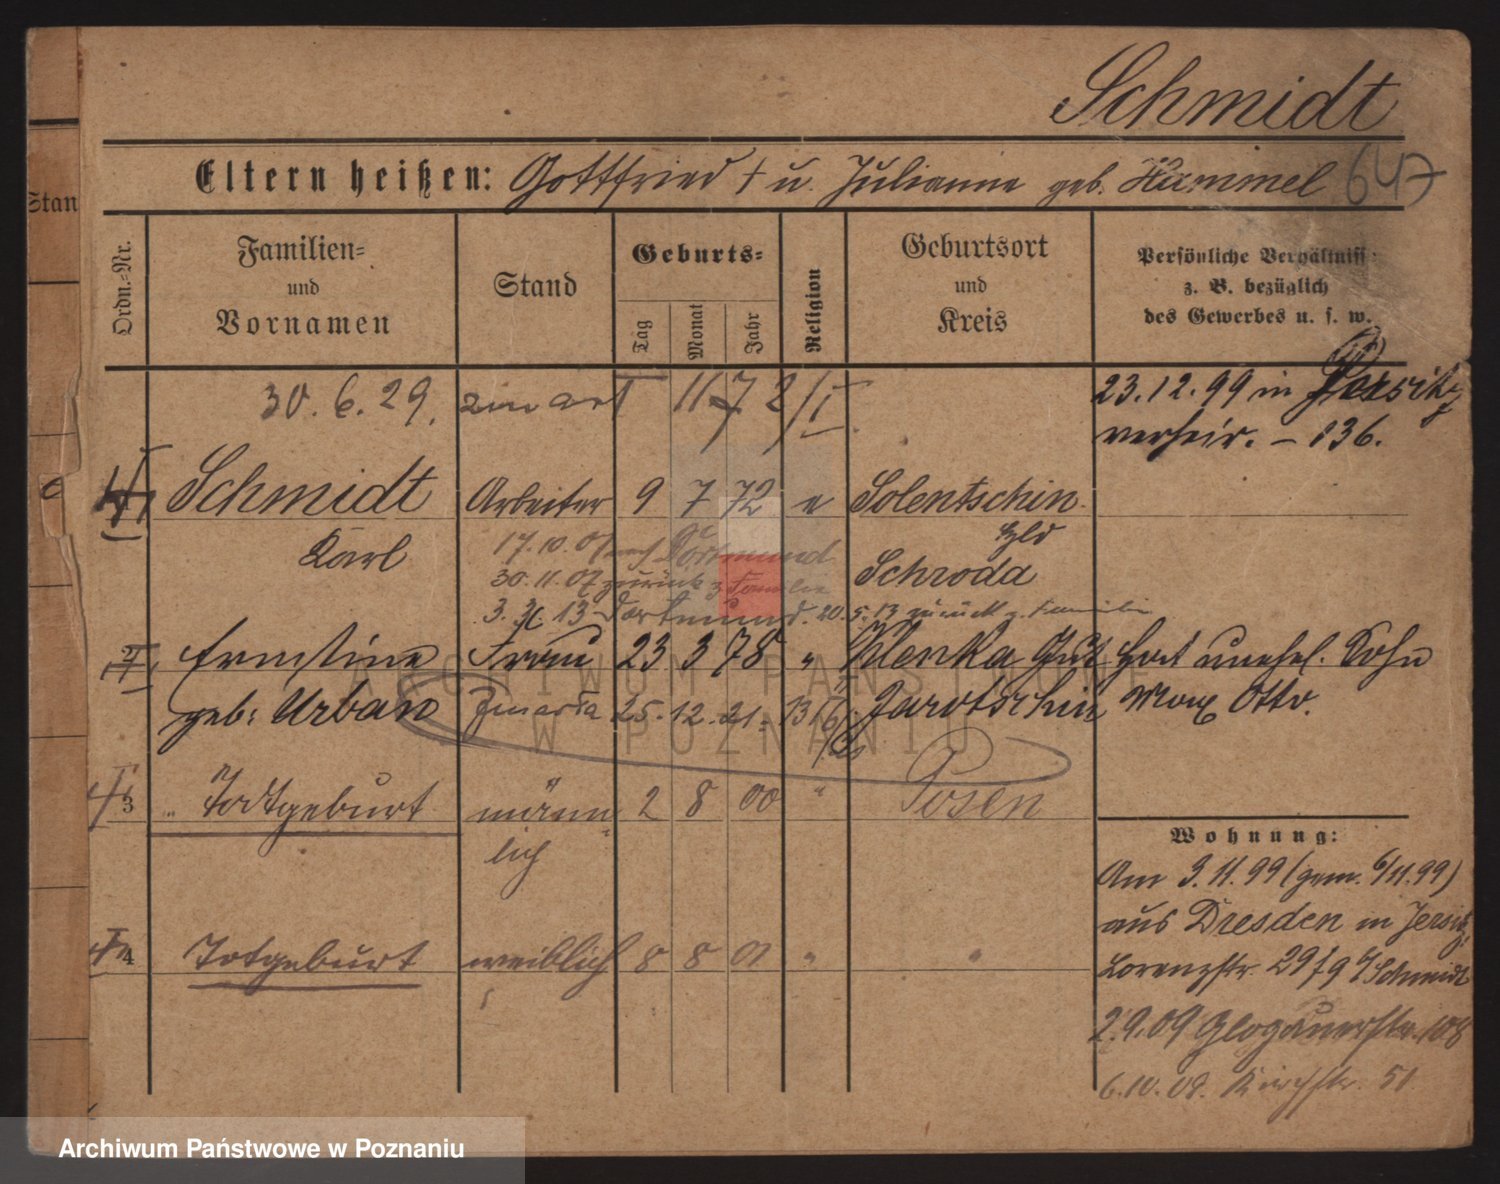 Schmidt
Eltern heißen: Gottfried † u. Julianne geb. Hammel 647
Ordn.-Nr.
Familien- und Vornamen
Stand
Geburts-
Tag Monat Jahr
Religion
Geburtsort und Kreis
Persönliche Verhältnisse z. B. bezüglich des Gewerbes u. s. w.
Stan
30. 6. 29.
23.12.99 in
verheir. – 136.
Schmidt Arbeiter 9 7 72 e Solentschin
Karl
17.10.07 nach Dortmund
Schroda
30.11.07 zurück z Familie
3. 3. 13 Dortmund. 20. 5. 13 zurück z. Familie
2 Ernstine Frau 23 3 78 " Klenka Gut Hat unehel. Sohn
geb: Urban 25. 12. 21. Jarotschin Max Otto.
3 Todtgeburt männ 2 8 00 " Posen
lich
Wohnung:
Am 3.11.99 (gem. 6/11.99)
aus Dresden in Jersitz,
4 Totgeburt weiblich 8 8 01 "
Lorenzstr. 29/9 Schmidt
2.9.09 Glogauerstr. 108
6.10.09. Kirchstr. 51
ARCHIWUM PAŃSTWOWE
W POZNANIU
Archiwum Państwowe w Poznaniu